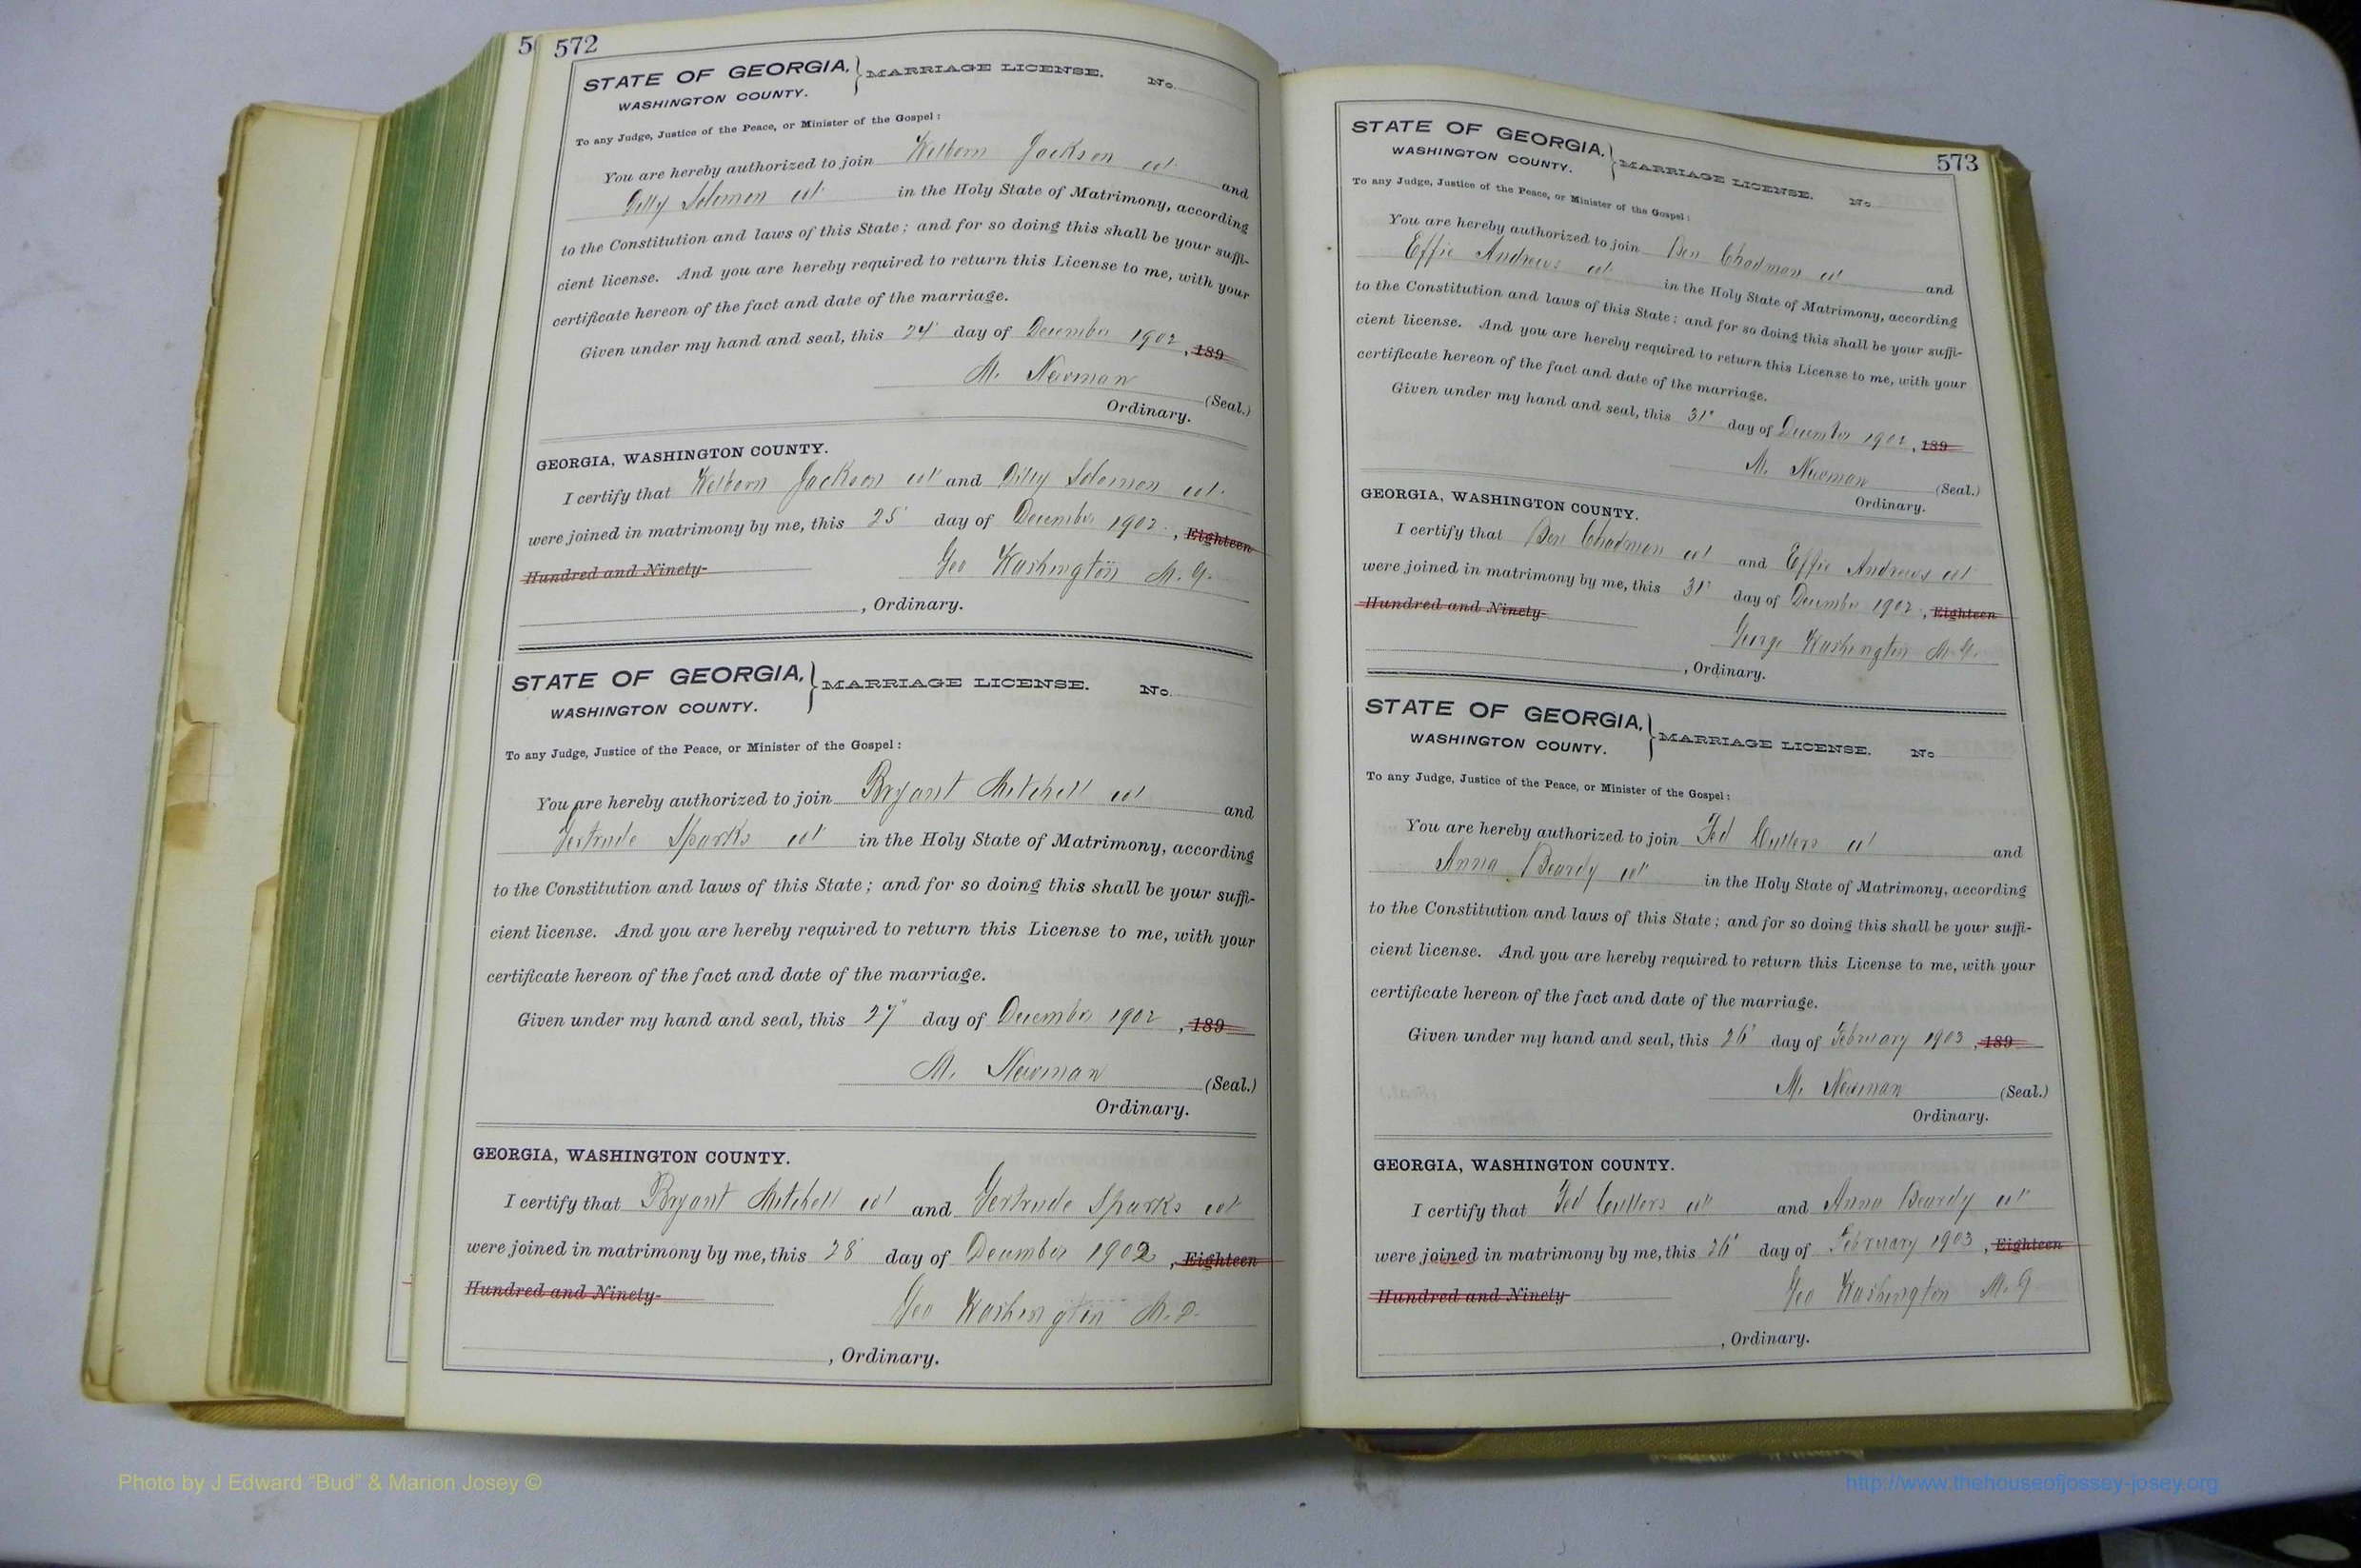 5
572
STATE OF GEORGIA, } MARRIAGE LICENSE. No.
WASHINGTON COUNTY.
To any Judge, Justice of the Peace, or Minister of the Gospel:
You are hereby authorized to join Welborn Jackson col and
Dilly Solomon col in the Holy State of Matrimony, according
to the Constitution and laws of this State; and for so doing this shall be your suffi-
cient license. And you are hereby required to return this License to me, with your
certificate hereon of the fact and date of the marriage.
Given under my hand and seal, this 24 day of December 1902, 189
M. Newman (Seal.)
Ordinary.
GEORGIA, WASHINGTON COUNTY.
I certify that Welborn Jackson col and Dilly Solomon col.
were joined in matrimony by me, this 25 day of December 1902, Eighteen
Hundred and Ninety- Geo Washington M. G.
, Ordinary.
STATE OF GEORGIA, } MARRIAGE LICENSE. No.
WASHINGTON COUNTY.
To any Judge, Justice of the Peace, or Minister of the Gospel:
You are hereby authorized to join Bryant Mitchell col and
Gertrude Sparks col in the Holy State of Matrimony, according
to the Constitution and laws of this State; and for so doing this shall be your suffi-
cient license. And you are hereby required to return this License to me, with your
certificate hereon of the fact and date of the marriage.
Given under my hand and seal, this 27" day of December 1902, 189
M. Newman (Seal.)
Ordinary.
GEORGIA, WASHINGTON COUNTY.
I certify that Bryant Mitchell col and Gertrude Sparks col
were joined in matrimony by me, this 28 day of December 1902, Eighteen
Hundred and Ninety- Geo Washington M. G.
, Ordinary.
573
STATE OF GEORGIA, } MARRIAGE LICENSE. No.
WASHINGTON COUNTY.
To any Judge, Justice of the Peace, or Minister of the Gospel:
You are hereby authorized to join Ben Chadman col and
Effie Andrews col in the Holy State of Matrimony, according
to the Constitution and laws of this State; and for so doing this shall be your suffi-
cient license. And you are hereby required to return this License to me, with your
certificate hereon of the fact and date of the marriage.
Given under my hand and seal, this 31" day of December 1902, 189
M. Newman (Seal.)
Ordinary.
GEORGIA, WASHINGTON COUNTY.
I certify that Ben Chadman col and Effie Andrews col
were joined in matrimony by me, this 31" day of December 1902, Eighteen
Hundred and Ninety- George Washington M. G.
, Ordinary.
STATE OF GEORGIA, } MARRIAGE LICENSE. No
WASHINGTON COUNTY.
To any Judge, Justice of the Peace, or Minister of the Gospel:
You are hereby authorized to join Fed Cullers col and
Anna Beardy col in the Holy State of Matrimony, according
to the Constitution and laws of this State; and for so doing this shall be your suffi-
cient license. And you are hereby required to return this License to me, with your
certificate hereon of the fact and date of the marriage.
Given under my hand and seal, this 26' day of February 1903, 189
M. Newman (Seal.)
Ordinary.
GEORGIA, WASHINGTON COUNTY.
I certify that Fed Cullers col and Anna Beardy col
were joined in matrimony by me, this 26' day of February 1903, Eighteen
Hundred and Ninety- Geo Washington M. G.
, Ordinary.
Photo by J Edward "Bud" & Marion Josey ©
http://www.thehouseofjossey-josey.org